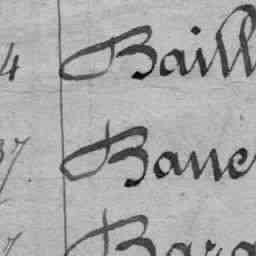 4 Baill
37 Banc
7 Bara